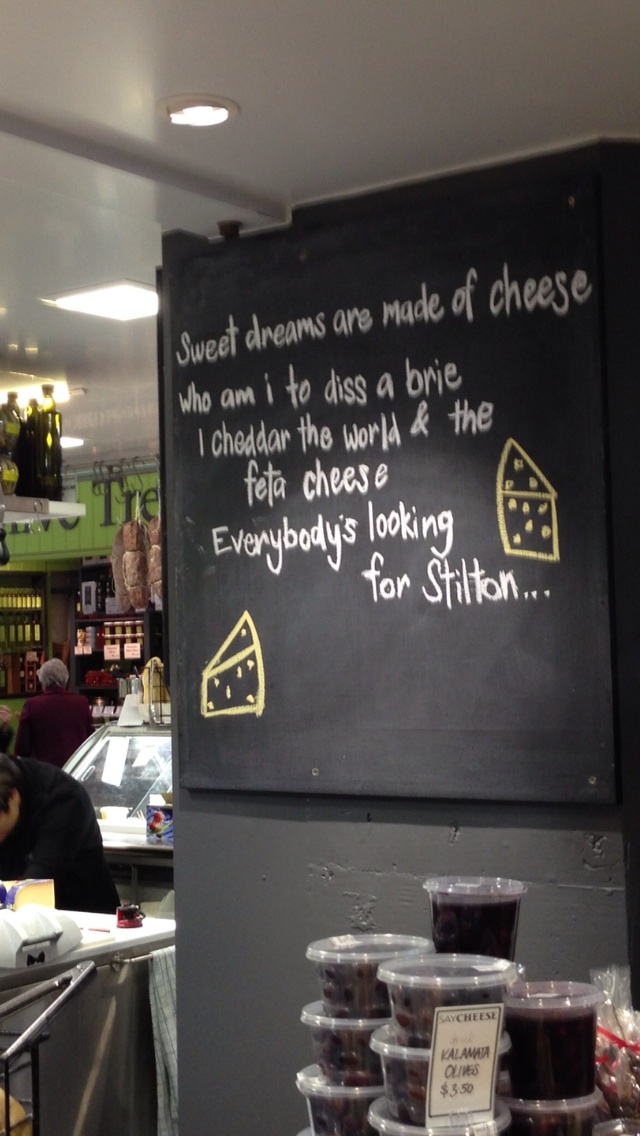 Sweet dreams are made of cheese
who am i to diss a brie
I cheddar the world & the
feta cheese
Everybody's looking
for Stilton...
SAYCHEESE
KALAMATA
OLIVES
$3.50